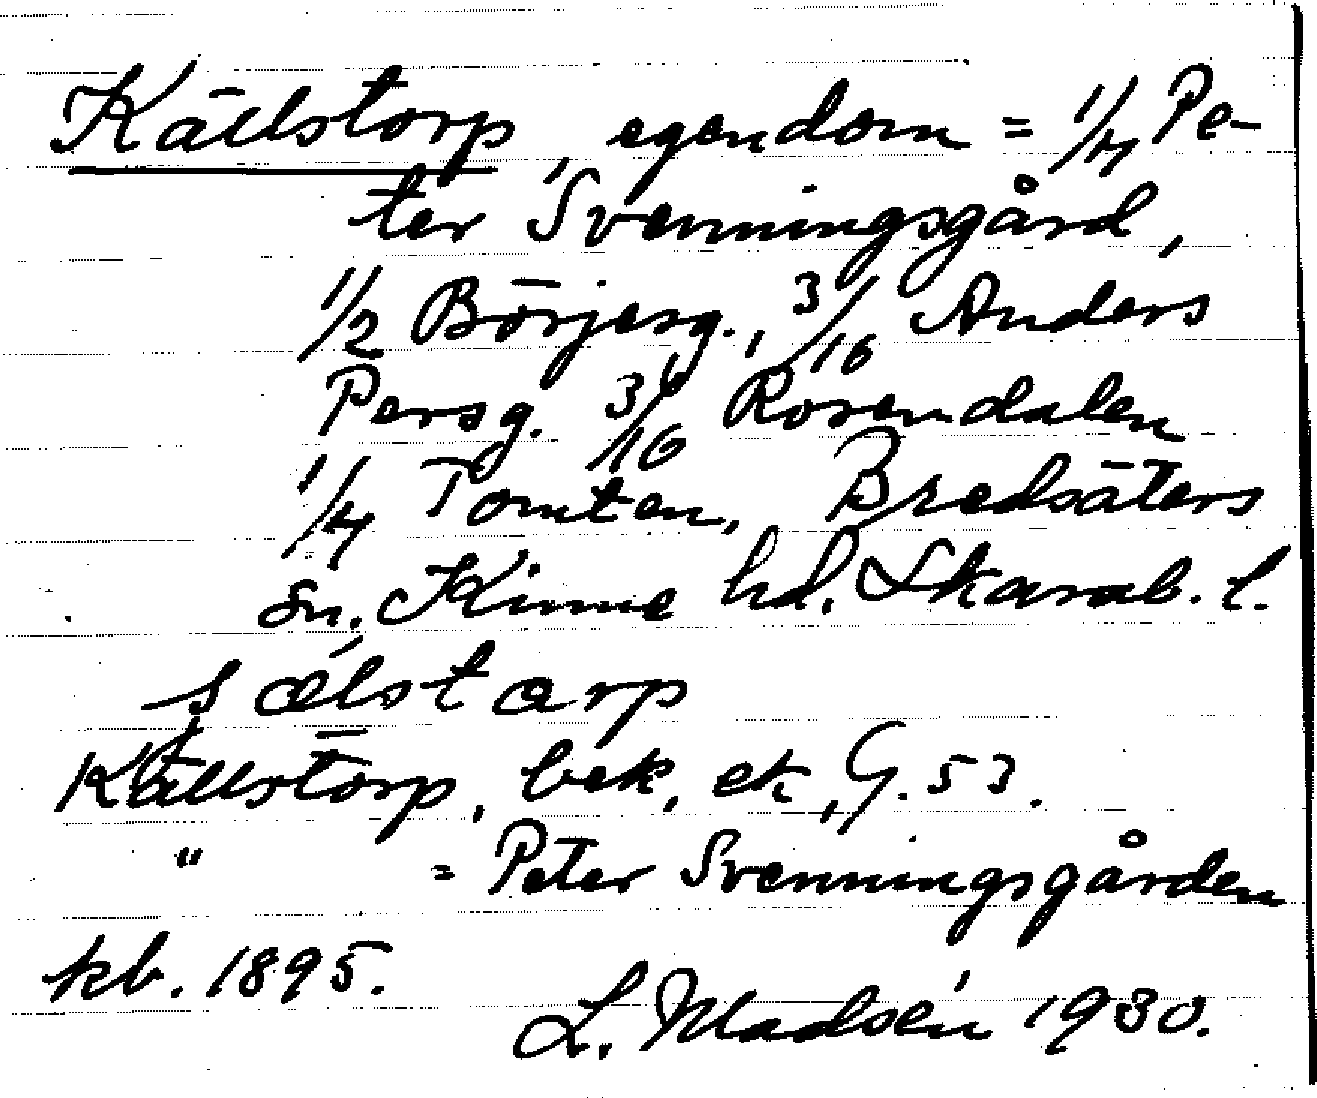 Källstorp, egendom = 1/4 Pe-
ter Svenningsgård,
1/2 Börjesg., 3/16 Anders
Persg. 3/16 Rosendalen
1/4 Tomten, Bredsäters
sn, Kinne hd. Skarab. l.
Källstorp, bek, ek, G. 53.
" = Peter Svenningsgården
kb. 1895.
L. Madsén 1930.